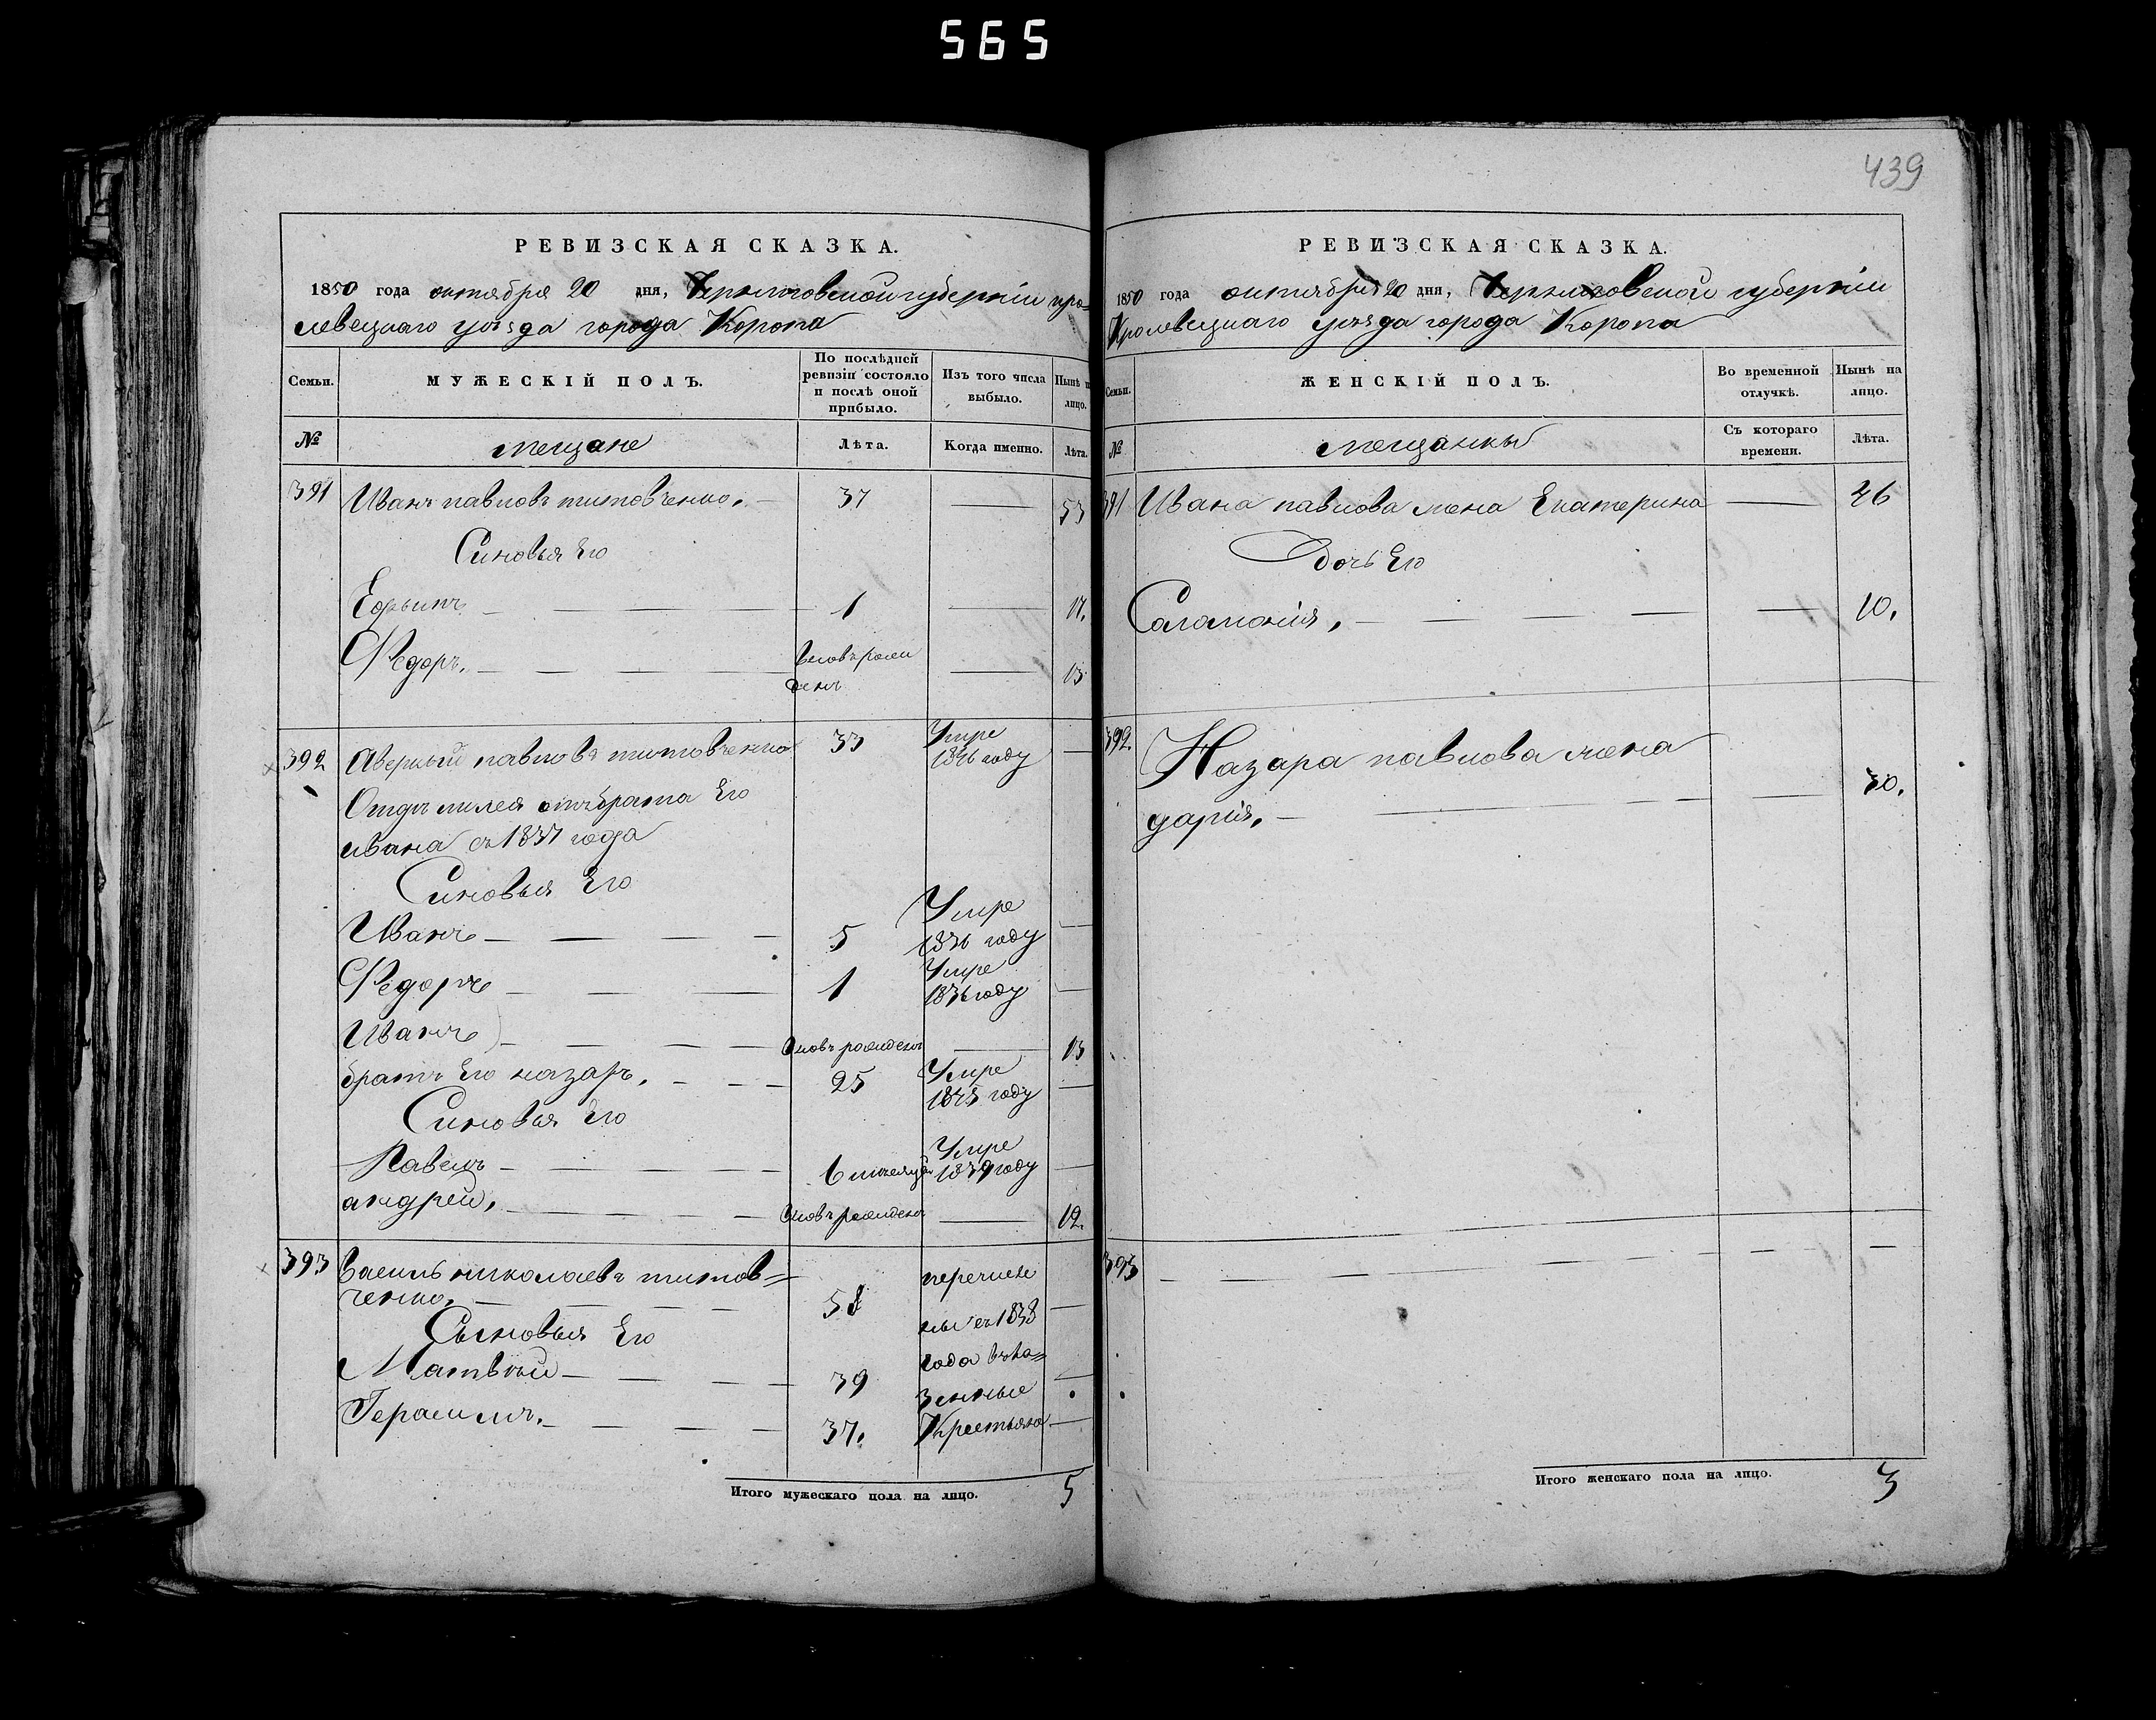 565
439
РЕВИЗСКАЯ СКАЗКА.
1850 года октября 20 дня, Черниговской губернии кро-
левецкаго уѣзда города Коропа
Семьи.
МУЖЕСКІЙ ПОЛЪ.
По послѣдней ревизіи состояло и послѣ оной прибыло.
Изъ того числа выбыло.
Нынѣ на лицо.
№
мещане
Лѣта.
Когда именно.
Лѣта.
391 Иванъ павловъ титовченко. 37 53
Синовья Его
1 17.
Федоръ. вновь рожденъ 13
392 Аверкий павловъ титовченко 33 Умре 1846 году
Отдѣлился отъ брата Его
ивана съ 1837 года
Синовья Его
Иванъ 5 Умре 1836 году
Федоръ 1 Умре 1836 году
Иванъ вновь рожденъ 13
братъ Его назаръ. 25 Умре году
Синовья Его
Павелъ 6 месяцей Умре 1839 году
андрей. вновь рожденъ 12.
393 Василь николаевъ титов=
ченко. 58 перечисле
Сыновья Его ны съ 1838
Матвѣй 39 года въ ка=
зенные
Герасимъ. 37. Крестьяне
Итого мужескаго пола на лицо. 5
РЕВИЗСКАЯ СКАЗКА.
1850 года октября 20 дня, Черниговской губерніи
Кролевецкаго уѣзда города Коропа
Семьи.
ЖЕНСКІЙ ПОЛЪ.
Во временной отлучкѣ.
Нынѣ на лицо.
№
мещанки
Съ котораго времени.
Лѣта.
391 Ивана павлова жена Екатерина 46
Дочь Его
Саламонія. 10.
392. Назара павлова жена
дарія. 30.
393
Итого женскаго пола на лицо. 3